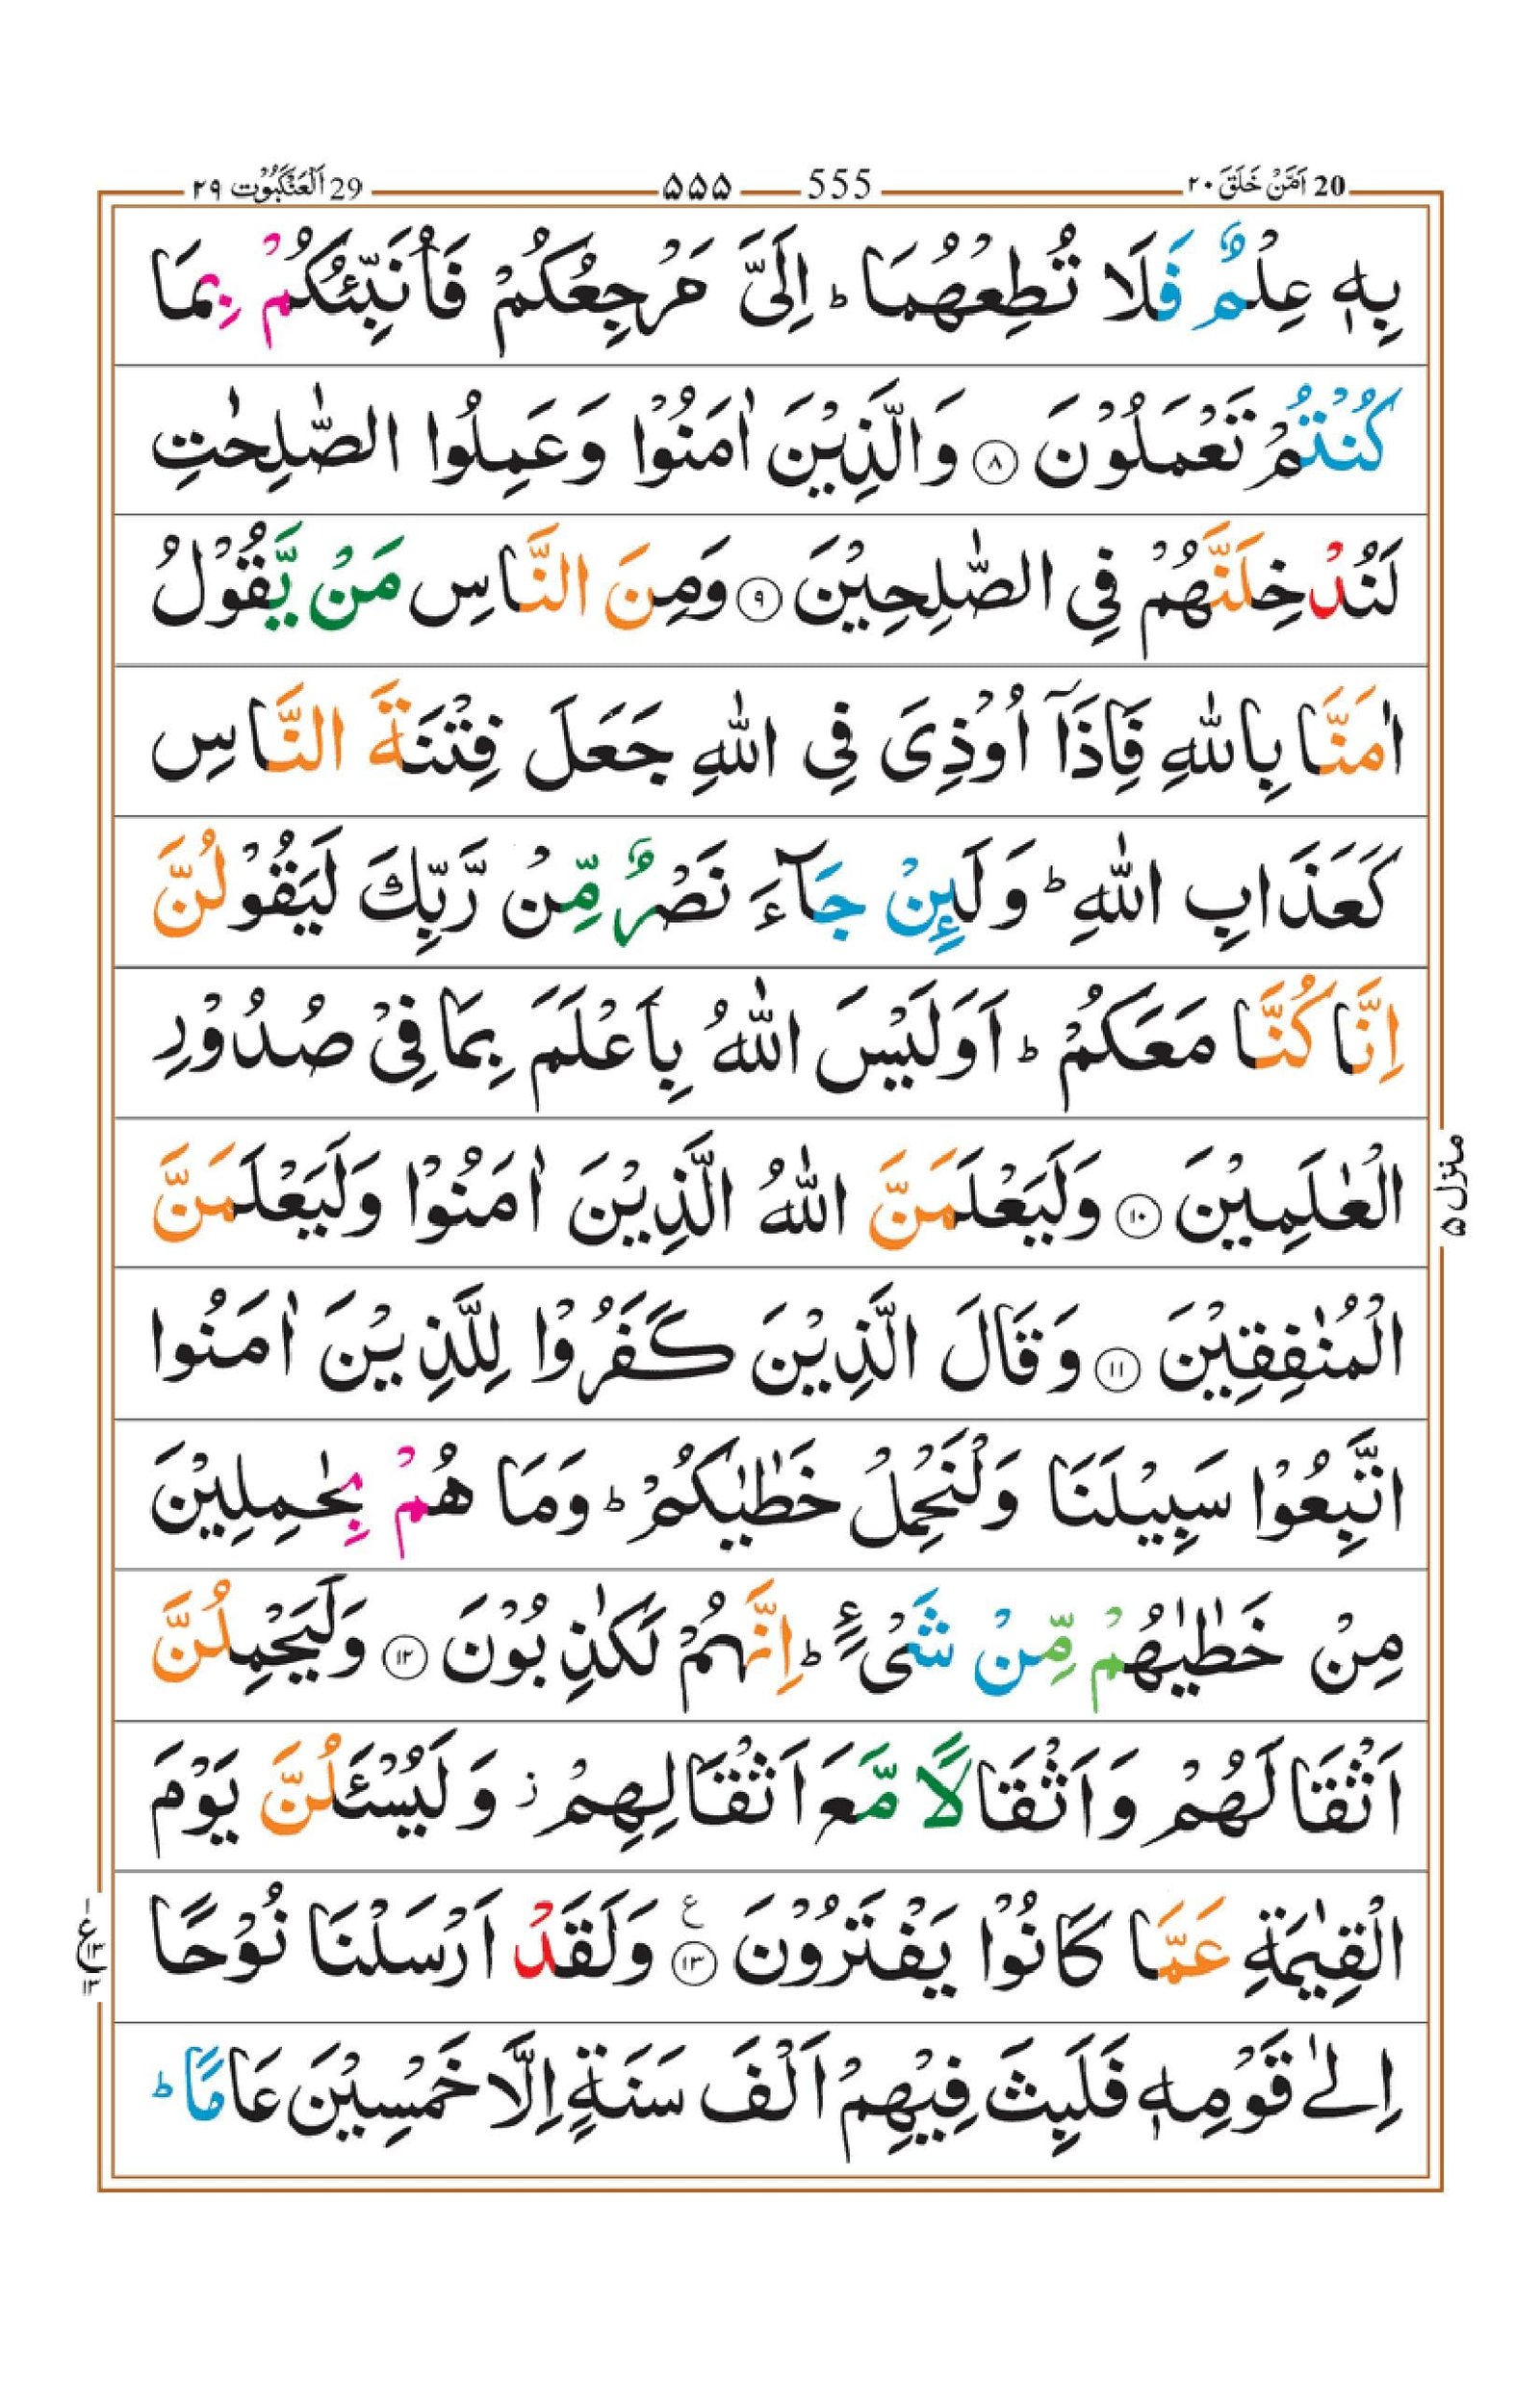 20 اَمَّنْ خَلَقَ ٢٠
555 ۵۵۵
29 اَلْعَنْكَبُوْت ٢٩
بِهٖ عِلْمٌ فَلَا تُطِعْهُمَا ؕ اِلَيَّ مَرْجِعُكُمْ فَاُنَبِّئُكُمْ بِمَا
كُنْتُمْ تَعْمَلُوْنَ ٨ وَالَّذِيْنَ اٰمَنُوْا وَعَمِلُوا الصّٰلِحٰتِ
لَنُدْخِلَنَّهُمْ فِي الصّٰلِحِيْنَ ٩ وَمِنَ النَّاسِ مَنْ يَّقُوْلُ
اٰمَنَّا بِاللّٰهِ فَاِذَاۤ اُوْذِيَ فِي اللّٰهِ جَعَلَ فِتْنَةَ النَّاسِ
كَعَذَابِ اللّٰهِ ؕ وَلَئِنْ جَآءَ نَصْرٌ مِّنْ رَّبِّكَ لَيَقُوْلُنَّ
اِنَّا كُنَّا مَعَكُمْ ؕ اَوَلَيْسَ اللّٰهُ بِاَعْلَمَ بِمَا فِيْ صُدُوْرِ
الْعٰلَمِيْنَ ١٠ وَلَيَعْلَمَنَّ اللّٰهُ الَّذِيْنَ اٰمَنُوْا وَلَيَعْلَمَنَّ
الْمُنٰفِقِيْنَ ١١ وَقَالَ الَّذِيْنَ كَفَرُوْا لِلَّذِيْنَ اٰمَنُوا
اتَّبِعُوْا سَبِيْلَنَا وَلْنَحْمِلْ خَطٰيٰكُمْ ؕ وَمَا هُمْ بِحٰمِلِيْنَ
مِنْ خَطٰيٰهُمْ مِّنْ شَيْءٍ ؕ اِنَّهُمْ لَكٰذِبُوْنَ ١٢ وَلَيَحْمِلُنَّ
اَثْقَالَهُمْ وَاَثْقَالًا مَّعَ اَثْقَالِهِمْ ز وَلَيُسْئَلُنَّ يَوْمَ
الْقِيٰمَةِ عَمَّا كَانُوْا يَفْتَرُوْنَ ١٣ ع وَلَقَدْ اَرْسَلْنَا نُوْحًا
اِلٰى قَوْمِهٖ فَلَبِثَ فِيْهِمْ اَلْفَ سَنَةٍ اِلَّا خَمْسِيْنَ عَامًا ؕ
منزل ۵
١ ع ١٣ ١٣